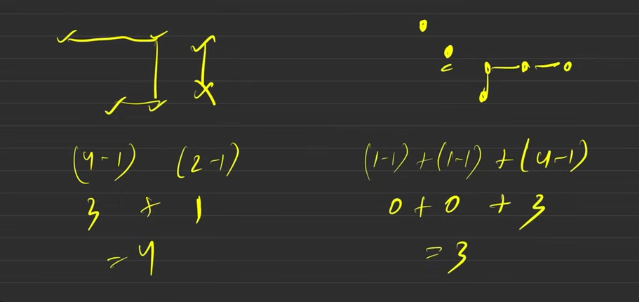 (4-1) (2-1)
3 + 1
= 4
(1-1) + (1-1) + (4-1)
0 + 0 + 3
= 3